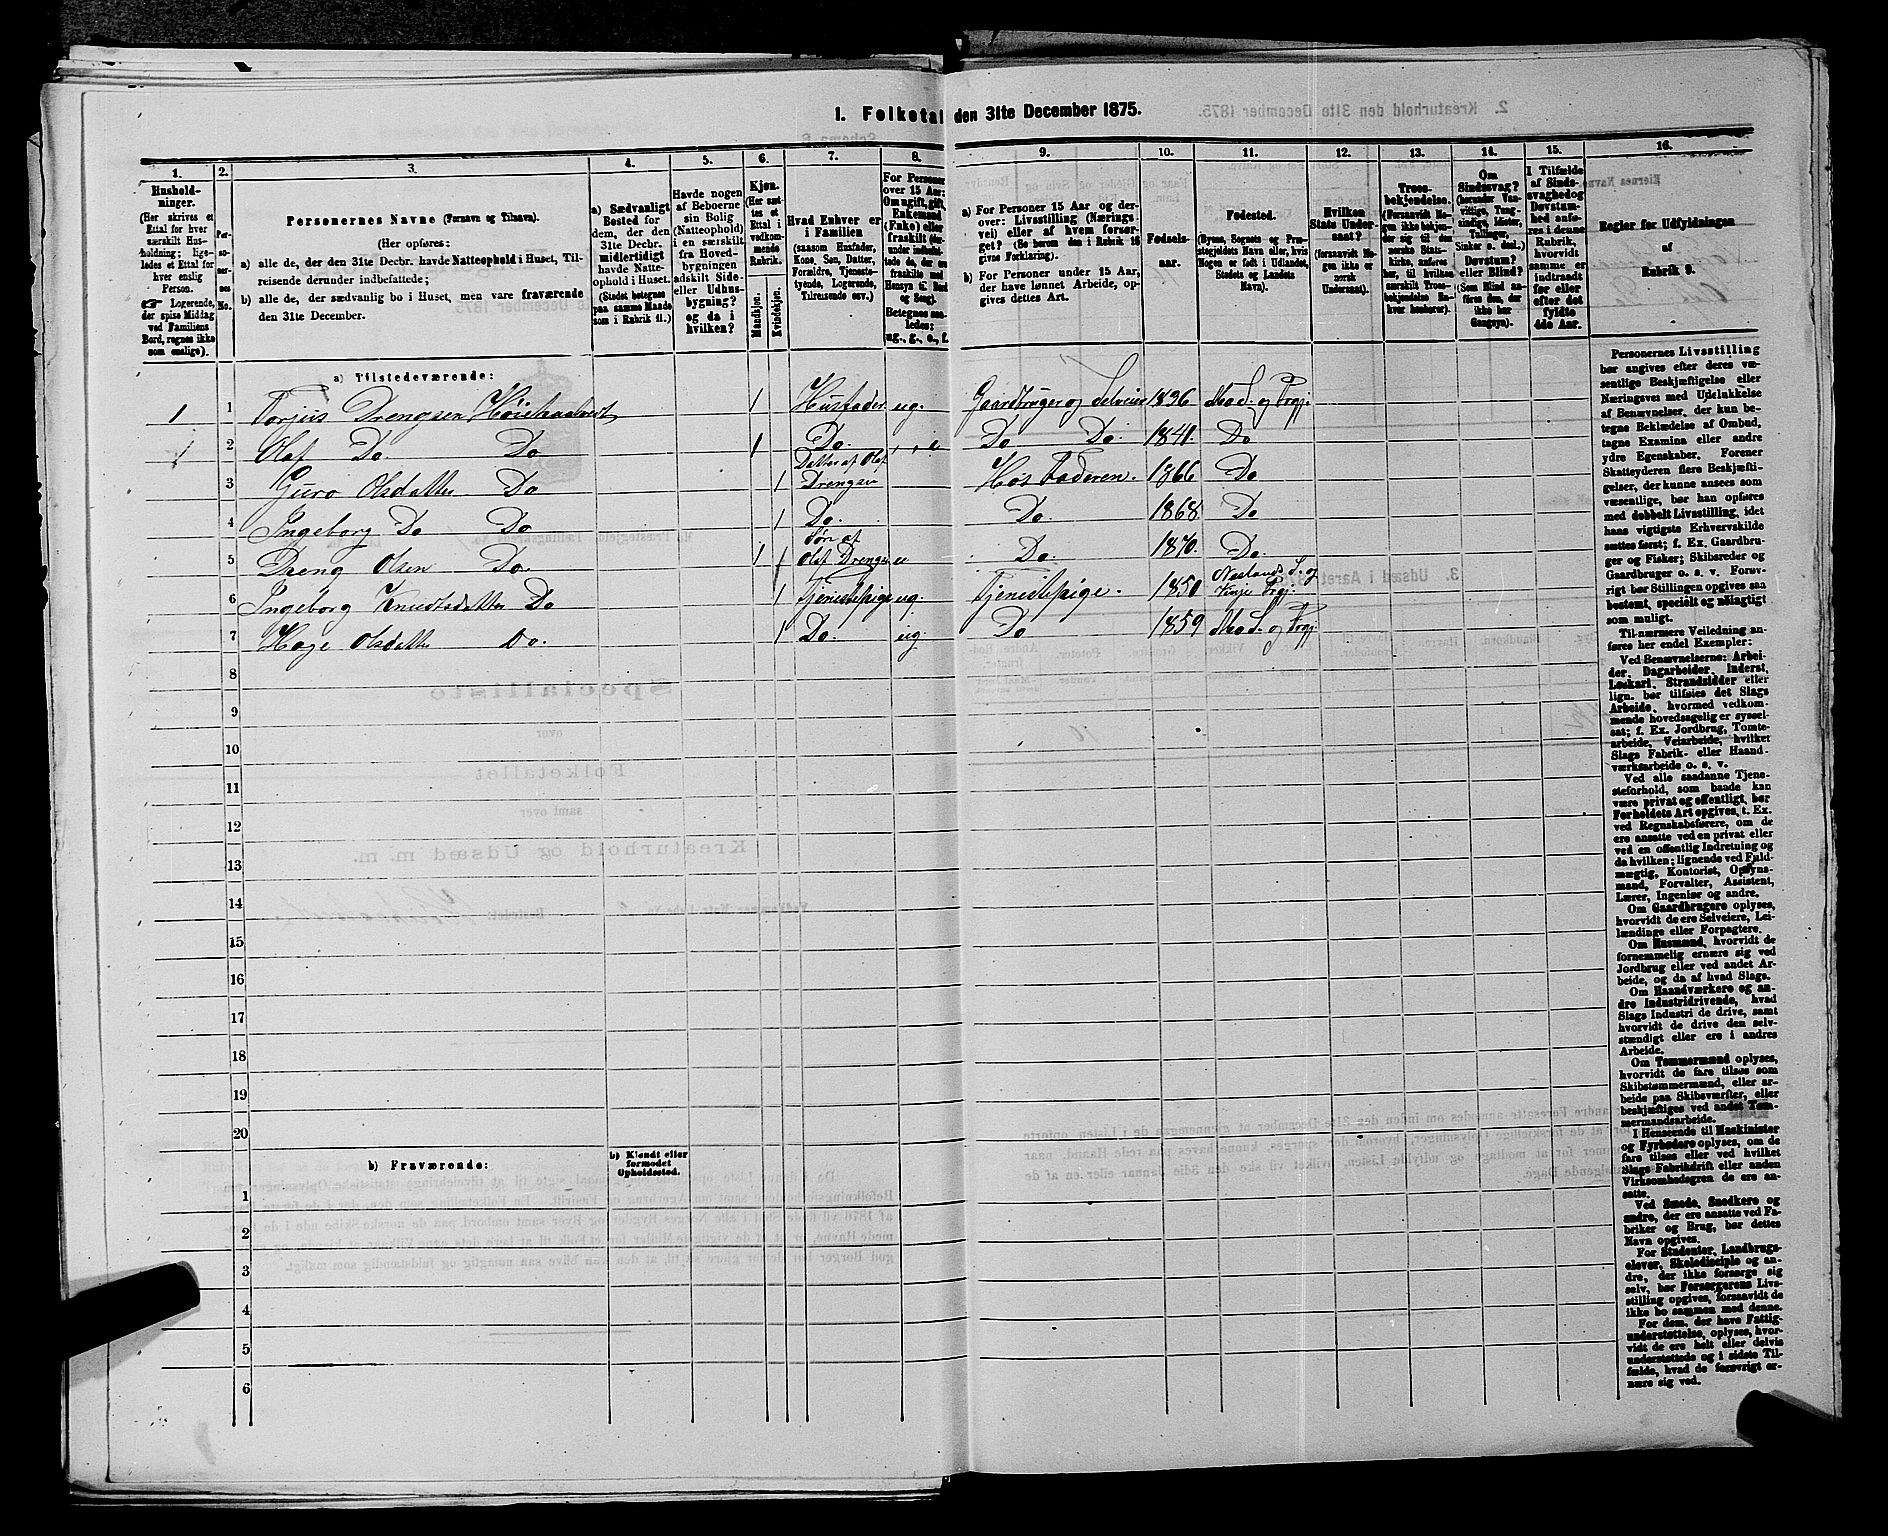 1. Folketal den 31te December 1875.
1.
2.
3.
4.
5.
6.
7.
8.
9.
10.
11.
12.
13.
14.
15.
16.
Hushold-
ninger.
(Her skrives et
Ettal for hver
særskilt Hus-
holdning; lige-
ledes et Ettal for
hver enslig
Person.
☞ Logerende,
der spise Middag
ved Familiens
Bord, regnes ikke
som enslige).
Per-
soner-
nes
No.
Personernes Navne (Fornavn og Tilnavn).
(Her opføres:
a) alle de, der den 31te Decbr. havde Natteophold i Huset, Til-
reisende derunder indbefattede;
b) alle de, der sædvanlig bo i Huset, men vare fraværende
den 31te December.
a) Sædvanligt
Bosted for
dem, der den
31te Decbr.
midlertidigt
havde Natte-
ophold i Huset.
(Stedet betegnes
paa samme Maade
som i Rubrik 11.)
Havde nogen
af Beboerne
sin Bolig
(Natteophold)
i en særskilt
fra Hoved-
bygningen
adskilt Side-
eller Udhus-
bygning?
og da i
hvilken?
Kjøn.
(Her sæt-
tes et
Ettal i
vedkom-
mende
Rubrik.
Mandkjøn.
Kvindekjøn.
Hvad Enhver er
i Familien
(saasom Husfader,
Kone, Søn, Datter,
Forældre, Tjeneste-
tyende, Logerende,
Tilreisende osv.)
For Personer
over 15 Aar:
Om ugift, gift,
Enkemand
(Enke) eller
fraskilt
Betegnes saa-
ledes:
ug., g., e., f.
a) For Personer 15 Aar og der-
over: Livsstilling (Nærings-
vei) eller af hvem forsør-
get? (Se herom den i Rubrik 16
givne Forklaring).
b) For Personer under 15 Aar,
der have lønnet Arbeide, op-
gives dettes Art.
Fødsels-
aar.
Fødested.
(Byens, Sognets og Præ-
stegjeldets Navn eller, hvis
Nogen er født i Udlandet,
Stedets og Landets
Navn).
Hvilken
Stats Under-
saat?
(forsaavidt No-
gen ikke er
norsk
Undersaat).
Troes-
bekjendelse.
(Forsaavidt No-
gen ikke bekjen-
der sig til den
norske Stats-
kirke, anføres
her, til hvilken
særskilt Troes-
bekjendelse En-
hver henhører).
Om
Sindssvag?
(herunder Van-
vittige, Tung-
sindige, Idioter,
Tullinger,
Sinker o. desl.)
Døvstum?
eller Blind?
(Som Blind an-
føres den, der
ikke har
Gangsyn).
I Tilfælde
af Sinds-
svaghed og
Døvstum-
hed anfø-
res i denne
Rubrik,
hvorvidt
samme er
indtraadt
før eller
efter det
fyldte
4de Aar.
Regler for Udfyldningen
af
Rubrik 9.
a) Tilstedeværende:
1 1 Torjus Drengsen 1 Husfader ug. Gaardbruger og Selveier 1836 Mo S. og Prgj.
1 2 Olaf Do Do 1 Do. e Do Do. 1841. Do
3 Guro Olsdatter Do 1 Datter af Olaf Drengsen Hos Faderen. 1866 Do
4 Ingeborg Do Do 1 Do. Do. 1868 Do
5 Dreng Olsen Do. 1 Søn af Olaf Drengsen Do. 1870. Do.
6 Ingeborg Knudsdatter Do 1 Tjenestepige ug. Tjenestepige. 1850 S. og Vinje Prgj.
7 Hæge Olsdatter Do. 1 Do. ug. Do 1859 Mo S. og Prgj.
8
9
10
11
12
13
14
15
16
17
18
19
20
b) Fraværende:
b) Kjendt eller
formodet
Opholdssted.
1
2
3
4
5
6
Personernes Livsstilling
bør angives efter deres væ-
sentlige Beskjæftigelse eller
Næringsvei med Udelukkelse
af Benævnelser, der kun be-
tegne Beklædelse af Ombud,
tagne Examina eller andre
ydre Egenskaber. Forener
Skatteyderen flere Beskjæfti-
gelser, der kunne ansees som
væsentlige, bør han opføres
med dobbelt Livsstilling, idet
hans vigtigste Erhvervskilde
sættes først; f. Ex. Gaardbru-
ger og Fisker; Skibsreder og
Gaardbruger o. s. v. Forøv-
rigt bør Stillingen opgives saa
bestemt, specielt og nøiagtigt
som muligt.
Til nærmere Veiledning an-
føres her endel Exempler:
Ved Benævnelserne: Arbei-
der, Dagarbeider, Inderst,
Løskarl, Strandsidder eller
lign. bør tilføies det Slags
Arbeide, hvormed vedkom-
mende hovedsagelig er syssel-
sat; f. Ex. Jordbrug, Tomte-
arbeide, Veiarbeide, hvilket
Slags Fabrik- eller Haand-
værksarbeide o. s. v.
Ved alle saadanne Tjene-
steforhold, som baade kan
være privat og offentligt, bør
Forholdets Art opgives, t. Ex.
ved Regnskabsførere, om de
ere ansatte ved en privat eller
ved en offentlig Indretning og
da hvilken; lignende ved Fuld-
mægtig, Kontorist, Opsyns-
mand, Forvalter, Assistent,
Lærer, Ingeniør og andre.
Om Gaardbrugere oplyses,
hvorvidt de ere Selveiere, Lei-
lændinge eller Forpagtere.
Om Husmænd, hvorvidt de
fornemmelig ernære sig ved
Jordbrug eller ved andet Ar-
beide, og da af hvad Slags.
Om Haandværkere og an-
dre Industridrivende, hvad
Slags Industri de drive, samt
hvorvidt de drive den selv-
stændigt eller ere i andres
Arbeide.
Om Tømmermænd oplyses,
hvorvidt de fare tilsøs som
Skibstømmermænd, eller ar-
beide paa Skibsværfter, eller
beskjæftiges ved andet Tøm-
mermandsarbeide.
I Henseende til Maskinister
og Fyrbødere oplyses, om de
fare tilsøs eller ved hvilket
Slags Fabrikdrift eller anden
Virksomhedsgren de ere an-
satte.
Ved Smede, Snedkere og
andre, der ere ansatte ved Fa-
briker og Brug, bør dettes
Navn opgives.
For Studenter, Landbrugs-
elever, Skoledisciple og an-
dre, der ikke forsørge sig
selv, bør Forsørgerens Livs-
stilling opgives, forsaavidt de
ikke bo sammen med denne.
For dem, der have Fattig-
understøttelse, oplyses, hvor-
vidt de ere helt eller delvis
understøttede og i sidste Til-
fælde, hvad de forøvrigt er-
nære sig ved.